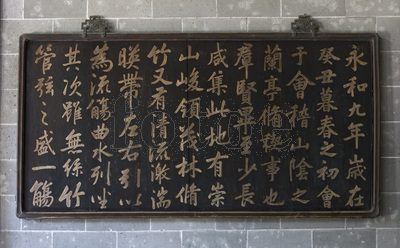 永和九年歲在
癸丑暮春之初會
于會稽山陰之
蘭亭脩禊事也
羣賢畢至少長
咸集此地有崇
山峻領茂林脩
竹又有清流激湍
暎帶左右引以
為流觴曲水列坐
其次雖無絲竹
管弦之盛一觴